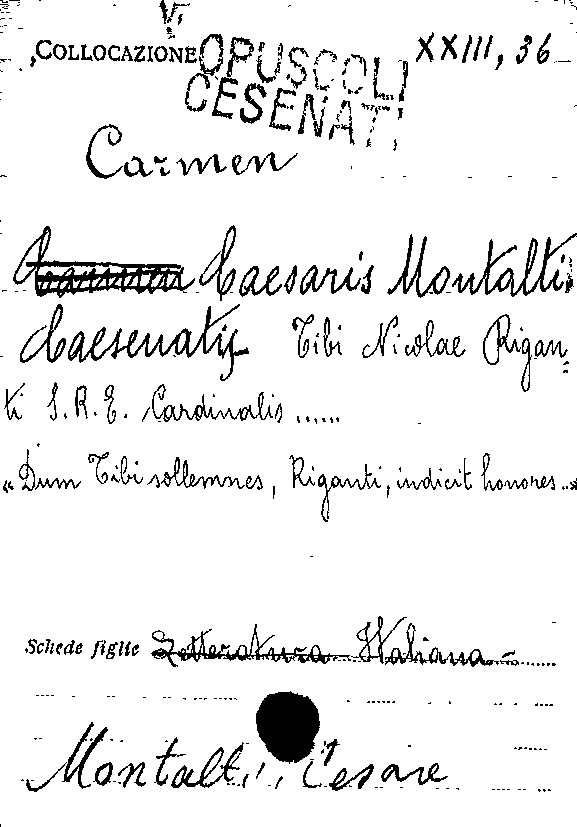 Vi
COLLOCAZIONE OPUSCOLI XXIII, 36
CESENATI
Carmen
Carmen Caesaris Montalti
Caesenatis Tibi Nicolae Rigan=
ti S.R.E. Cardinalis ......
"Dum Tibi sollemnes, Riganti, indicit honores..."
Schede figlie Letteratura Italiana =
Montalti, Cesare